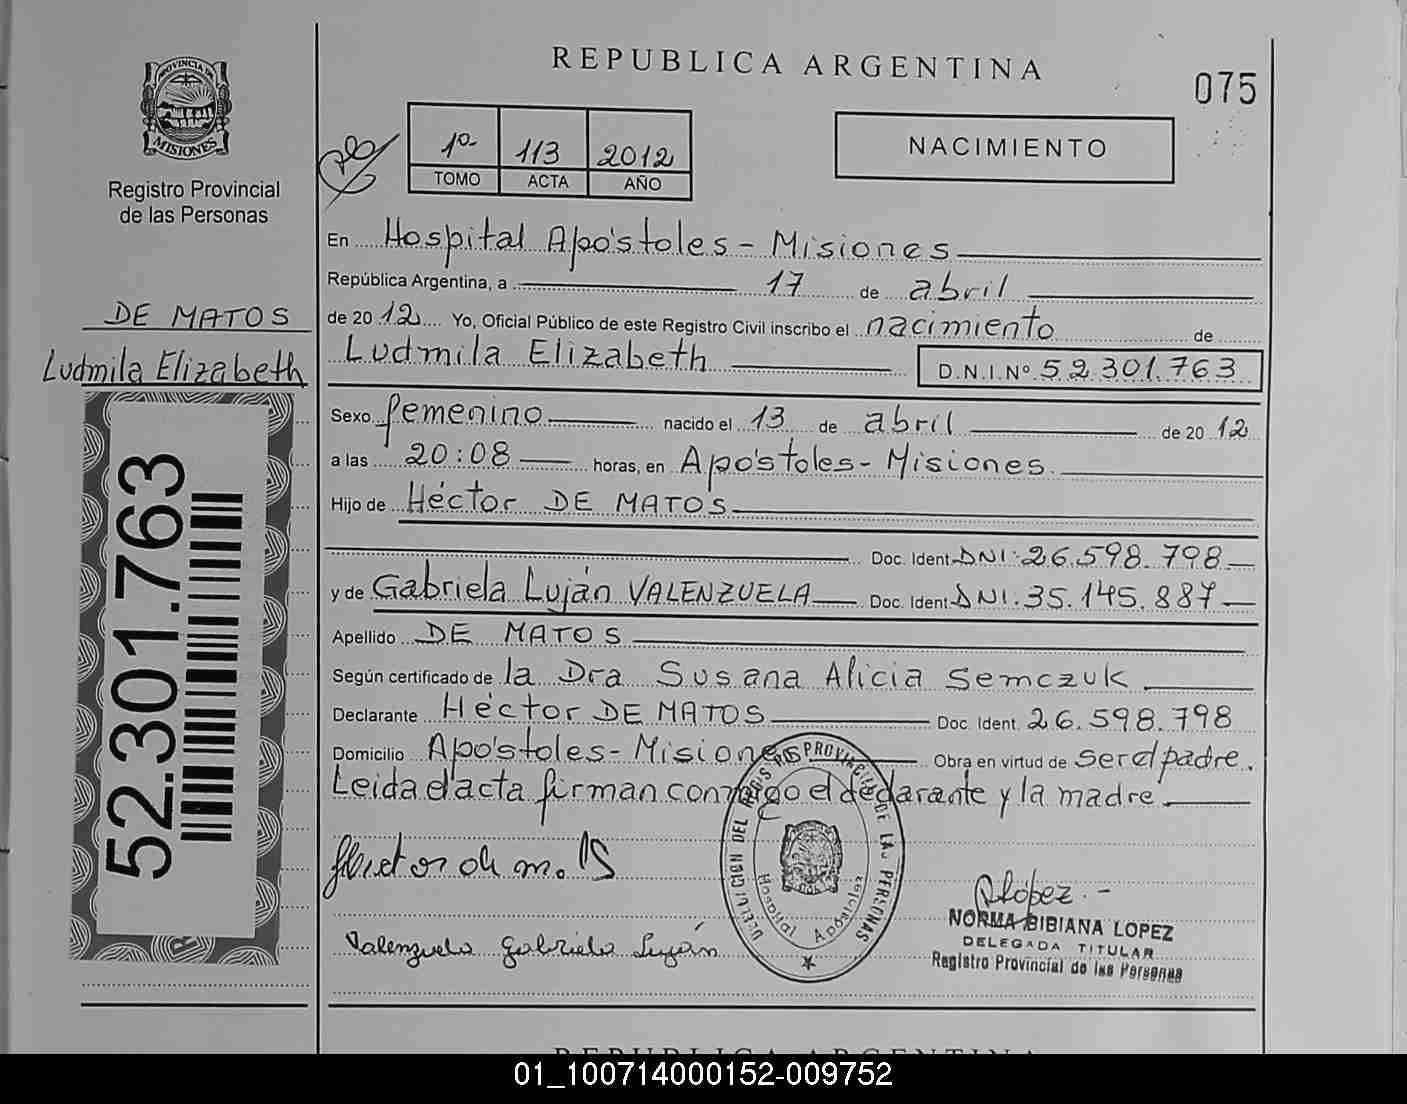 REPUBLICA ARGENTINA
075
PROVINCIA DE
MISIONES
Registro Provincial
de las Personas
1º 113 2012
TOMO ACTA AÑO
NACIMIENTO
En Hospital Apóstoles - Misiones
República Argentina, a 17 de abril
DE MATOS
Ludmila Elizabeth
de 20 12 Yo, Oficial Público de este Registro Civil inscribo el nacimiento de
Ludmila Elizabeth D.N.I. Nº 52.301.763
Sexo femenino nacido el 13 de abril de 20 12
a las 20:08 horas, en Apóstoles - Misiones.
Hijo de Héctor DE MATOS
Doc. Ident. DNI: 26.598.798
y de Gabriela Luján VALENZUELA Doc. Ident. DNI. 35.145.887
Apellido DE MATOS
Según certificado de la Dra Susana Alicia Semczuk
Declarante Héctor DE MATOS Doc. Ident. 26.598.798
Domicilio Apóstoles - Misiones Obra en virtud de ser el padre.
Leida el acta firman conmigo el declarante y la madre
52.301.763
Hector de m.
Valenzuela Gabriela Luján
DELEGACION DEL REGIS PROVINCIAL DE LAS PERSONAS
Hospital Apóstoles
Rlopez.-
NORMA BIBIANA LOPEZ
DELEGADA TITULAR
Registro Provincial de las Personas
REPUBLICA ARGENTINA
01_100714000152-009752